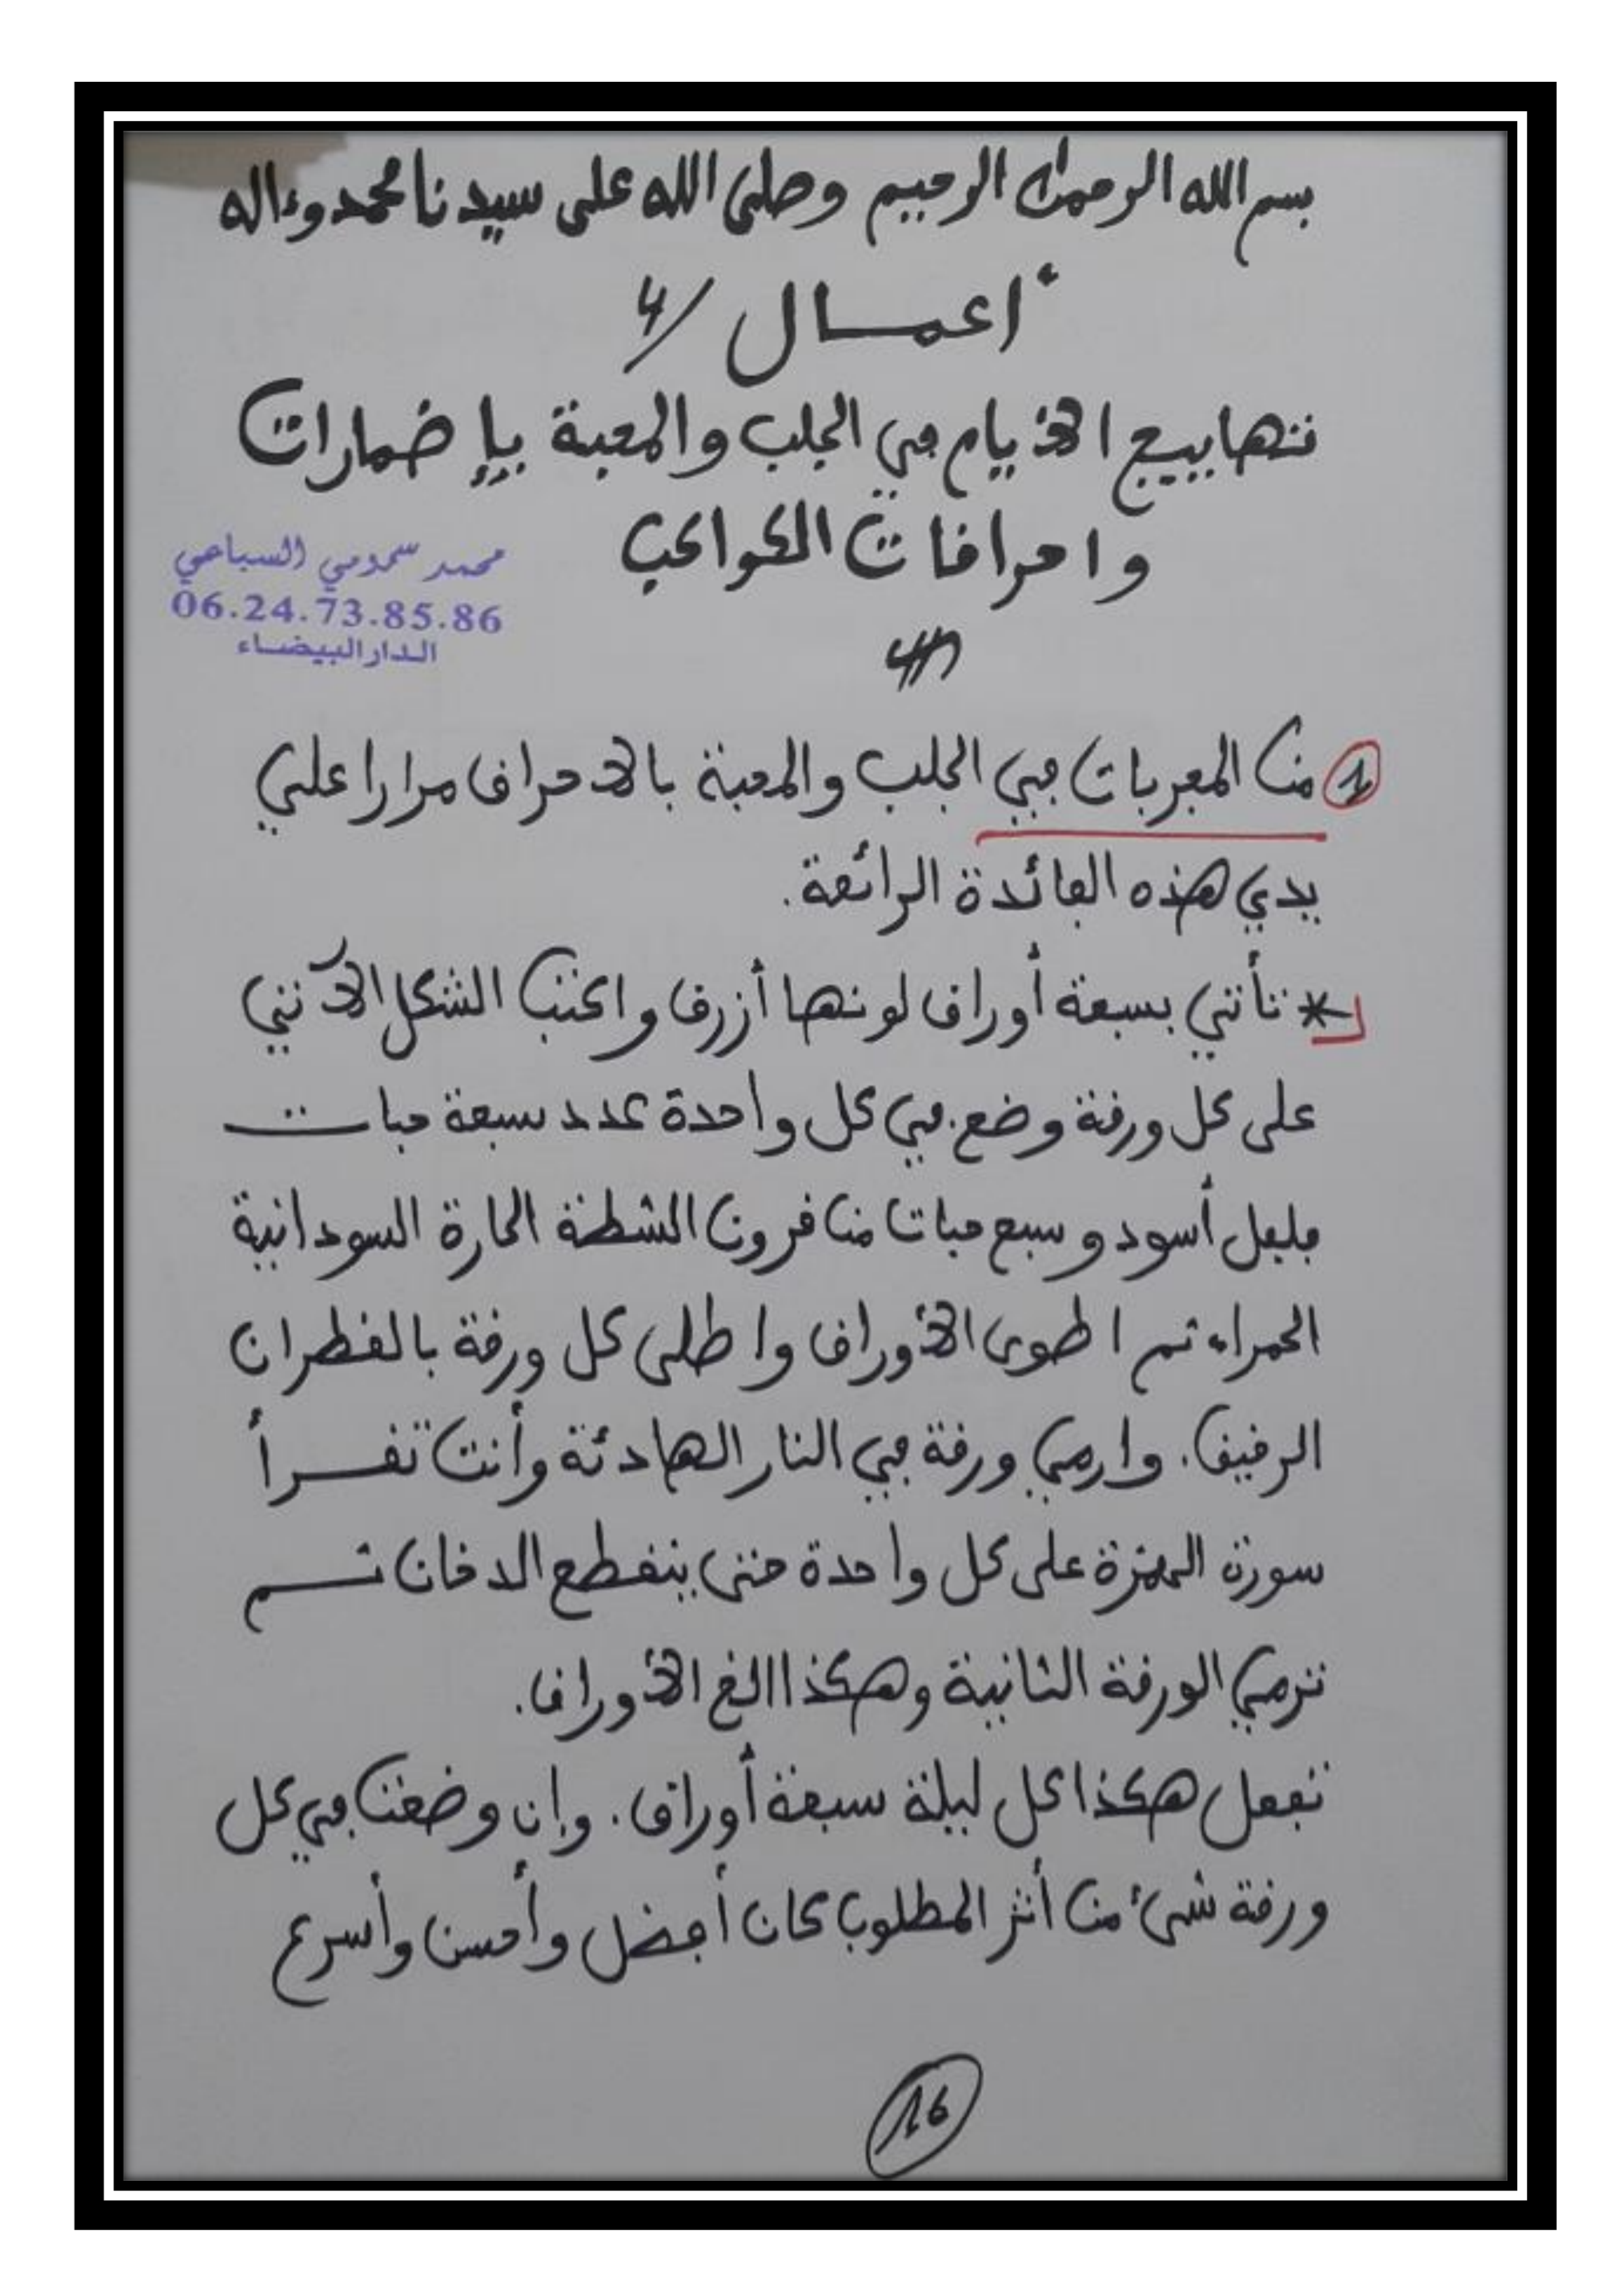 بسم الله الرحمان الرحيم وصلى الله على سيدنا محمد وءاله
أعمال /4
تهاييج الأيام في الجلب والمحبة بإضمارات
واحراقات الكواكب
محمد سحمومي السباعي
06.24.73.85.86
الدار البيضاء
1 من المجربات في الجلب والمحبة بالاحراق مرارا علي
يدي هذه الفائدة الرائعة.
* تأتي بسبعة أوراق لونها أزرق واكتب الشكل الآتي
على كل ورقة وضع في كل واحدة عدد سبعة حبات
فلفل أسود و سبع حبات من قرون الشطة الحارة السودانية
الحمراء ثم اطوى الأوراق واطلى كل ورقة بالقطران
الرقيق. وارمي ورقة في النار الهادئة وأنت تقرأ
سورة الهمزة على كل واحدة حتى ينقطع الدخان ثم
ترمي الورقة الثانية وهكذا الخ الأوراق.
تفعل هكذا كل ليلة سبعة أوراق. وإن وضعت في كل
ورقة شئ من أثر المطلوب كان أفضل وأحسن وأسرع
16